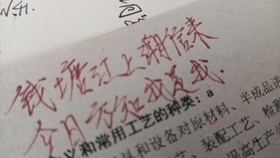 钱塘江上潮信来
今日方知我是我
义和常用工艺的种类：a
和设备对原材料、半成品进
装配工艺、